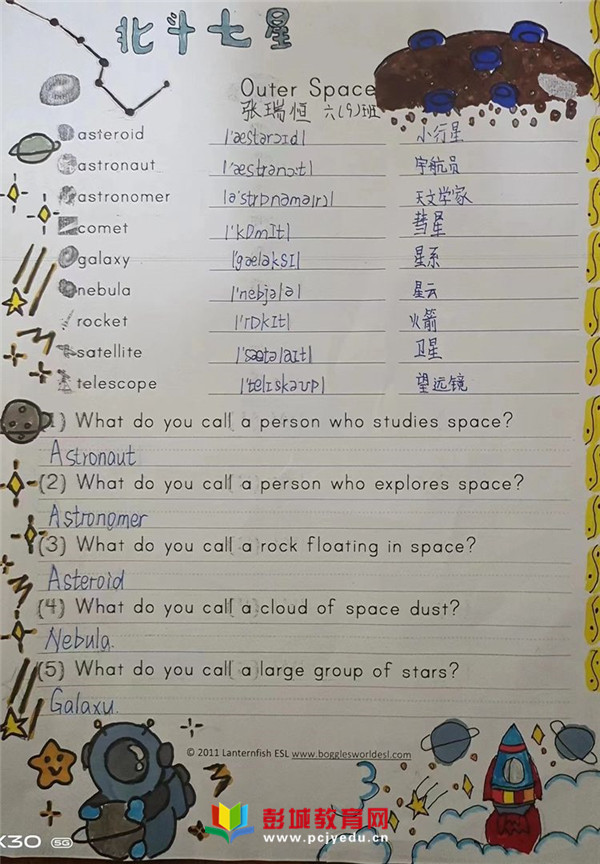 北斗七星
Outer Space
张瑞恒 六(9)班
asteroid |'æstərɔɪd| 小行星
astronaut |'æstrənɔ:t| 宇航员
astronomer |ə'strɒnəmə(r)| 天文学家
comet |'kɒmɪt| 彗星
galaxy |'gæləksɪ| 星系
nebula |'nebjələ| 星云
rocket |'rɒkɪt| 火箭
satellite |'sætəlaɪt| 卫星
telescope |'telɪskəʊp| 望远镜
(1) What do you call a person who studies space?
Astronaut
(2) What do you call a person who explores space?
Astronomer
(3) What do you call a rock floating in space?
Asteroid
(4) What do you call a cloud of space dust?
Nebula.
(5) What do you call a large group of stars?
Galaxu.
© 2011 Lanternfish ESL www.bogglesworldesl.com
彭城教育网
www.pcjyedu.cn
K30 5G